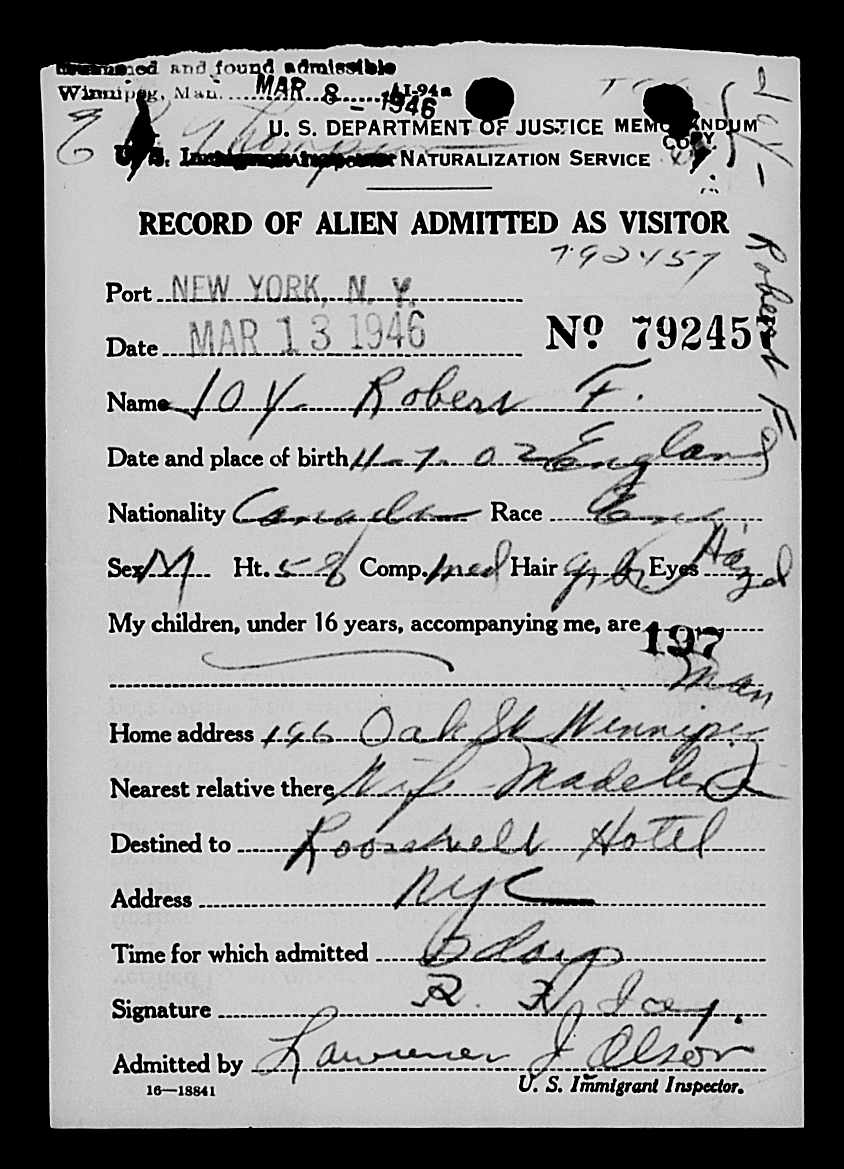 and found admissible
Winnipeg, Man. MAR 8 - 1946 I-94a
E Thompson
U. S. DEPARTMENT OF JUSTICE MEMORANDUM
COPY
U. S. NATURALIZATION SERVICE
RECORD OF ALIEN ADMITTED AS VISITOR
792457
Robert F
Port NEW YORK, N. Y.
Date MAR 13 1946 No 79245
Name JOY Robert F.
Date and place of birth 11-7-02 England
Nationality Canada Race
Sex M Ht. 5 8 Comp. Med Hair Eyes Hazel
My children, under 16 years, accompanying me, are 197
Man
Home address 196 Oak St Winnipeg
Nearest relative there Wife Madeleine
Destined to Roosevelt Hotel
Address NYC
Time for which admitted days
Signature R. F. Joy.
Admitted by Lawrence J Olson
16—18841 U. S. Immigrant Inspector.